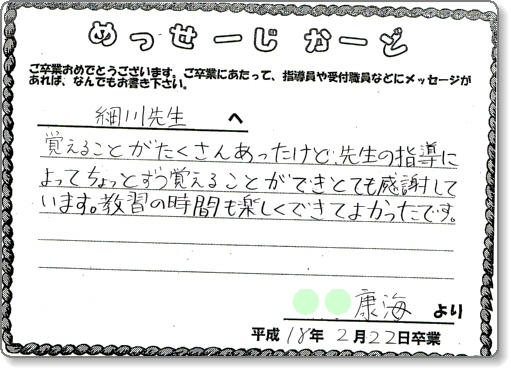 めっせーじかーど
ご卒業おめでとうございます。ご卒業にあたって、指導員や受付職員などにメッセージが
あれば、なんでもお書き下さい。
細川先生 へ
覚えることがたくさんあったけど、先生の指導に
よってちょっとずつ覚えることができとても感謝して
います。教習の時間も楽しくできてよかったです。
康海 より
平成 18年 2月22日卒業